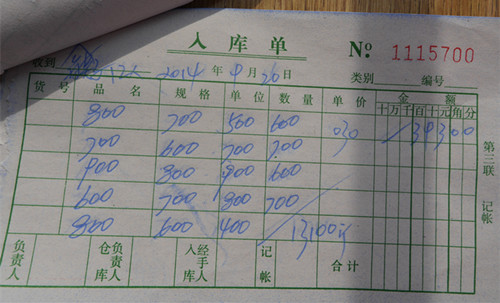 入库单 № 1115700
收到 2014年9月26日 类别 编号
货号 品名 规格 单位 数量 单价 金额
十万千百十元角分
800 700 500 600 030 39300
700 600 700 700
900 800 900 600
600 700 800 700
800 600 400 13100
负责人 仓库负责人 入库经手人 记帐 合计
第三联 记帐